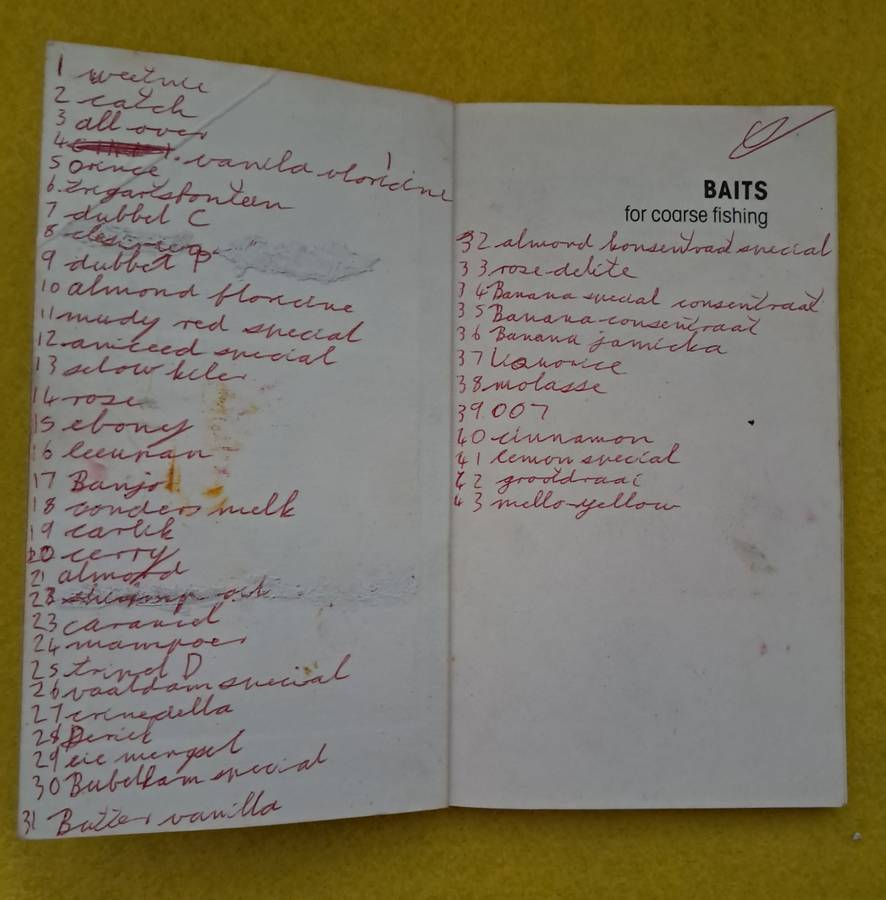 1 weetnie
2 catch
3 all-over
4 vanila vloricine
5 Orince
6 zrigartsfontein
7 dubbel C
8
9 dubbel P
10 almond floricine
11 mudy red special
12 aniceed special
13 selow keler
14 rose
15 ebony
16 leeunan
17 Banjo
18 conders melk
19 carlik
20 cerry
21 almond
22
23 caramel
24 mampoer
25 tripel D
26 vaaldam special
27 crinedella
28
29 eie mengsel
30 Bubelkam special
31 Butter vanilla
BAITS
for coarse fishing
32 almord konsentraad special
33 rose-delite
34 Banana special consentraat
35 Banana-consentraat
36 Banana jamicka
37
38 molasse
39 007
40 cinnamon
41 lemon special
42 grootdraai
43 mello-yellow